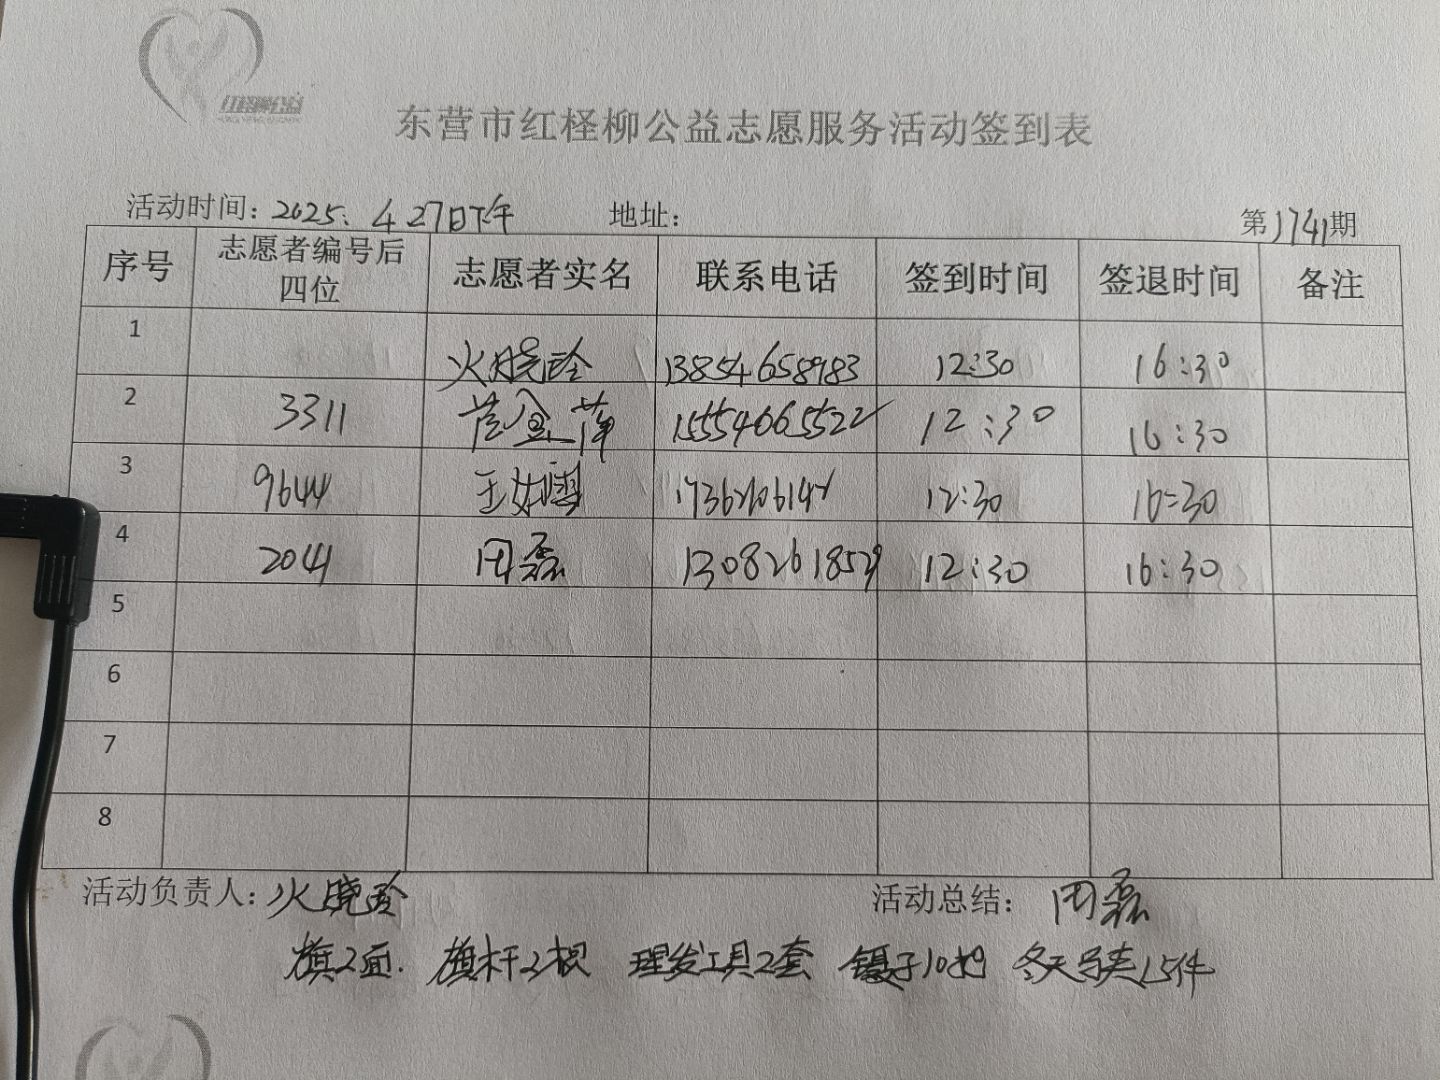 红柽柳公益
东营市红柽柳公益志愿服务活动签到表
活动时间：2025、4 27日下午 地址： 第1741期
序号 志愿者编号后四位 志愿者实名 联系电话 签到时间 签退时间 备注
1 火晓玲 13854658983 12:30 16:30
2 3311 苫金萍 15554665522 12:30 16:30
3 9644 王女 12:30 16:30
4 2041 周磊 13082618529 12:30 16:30
5
6
7
8
活动负责人：火晓玲 活动总结：周磊
旗2面. 旗杆2根 理发工具2套 镊子10把 冬天马夹15件